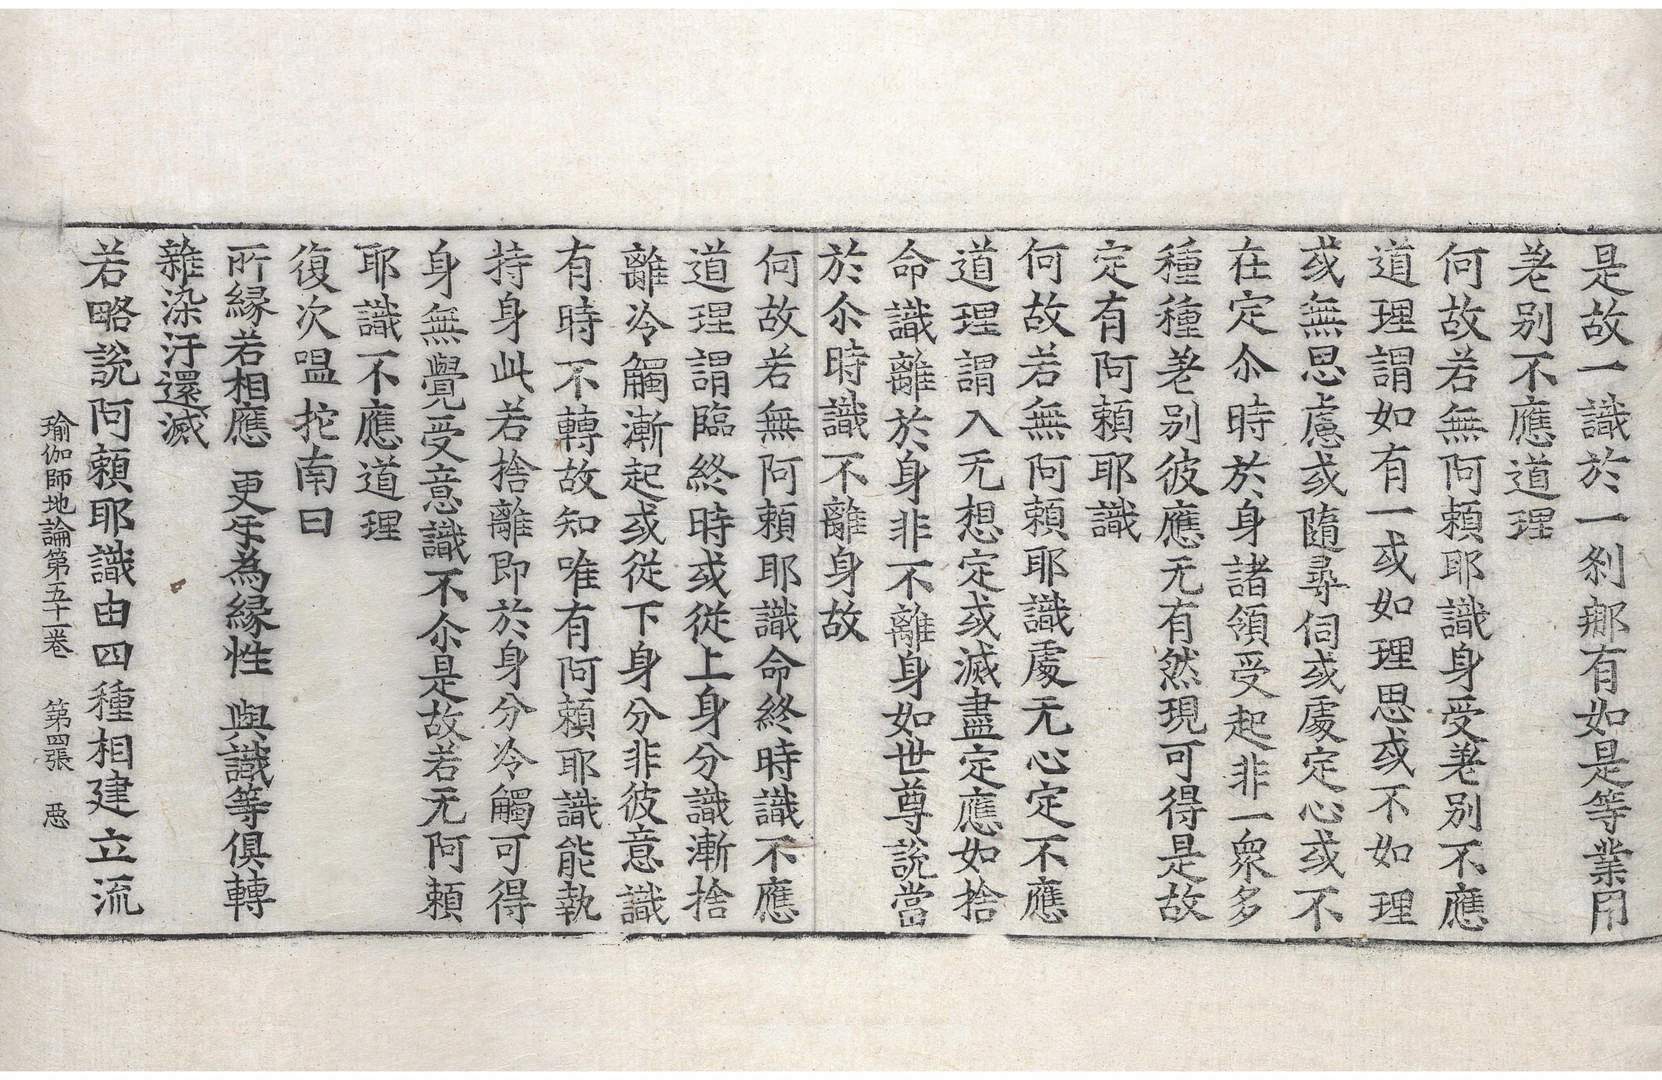 是故一識於一刹郍有如是等業用
差别不應道理
何故若無阿頼耶識身受差别不應
道理謂如有一或如理思或不如理
或無思慮或隨尋伺或處定心或不
在定尒時於身諸領受起非一衆多
種種差别彼應无有然現可得是故
定有阿頼耶識
何故若無阿頼耶識處无心定不應
道理謂入无想定或滅盡定應如捨
命識離於身非不離身如世尊說當
於尒時識不離身故
何故若無阿頼耶識命終時識不應
道理謂臨終時或從上身分識漸捨
離冷觸漸起或從下身分非彼意識
有時不轉故知唯有阿頼耶識能執
持身此若捨離即於身分冷觸可得
身無覺受意識不尒是故若无阿頼
耶識不應道理
復次嗢拕南曰
所縁若相應 更㸦為縁性 與識等俱轉
雜染汙還滅
若略說阿頼耶識由四種相建立流
瑜伽師地論第五十一卷 第四張 惡